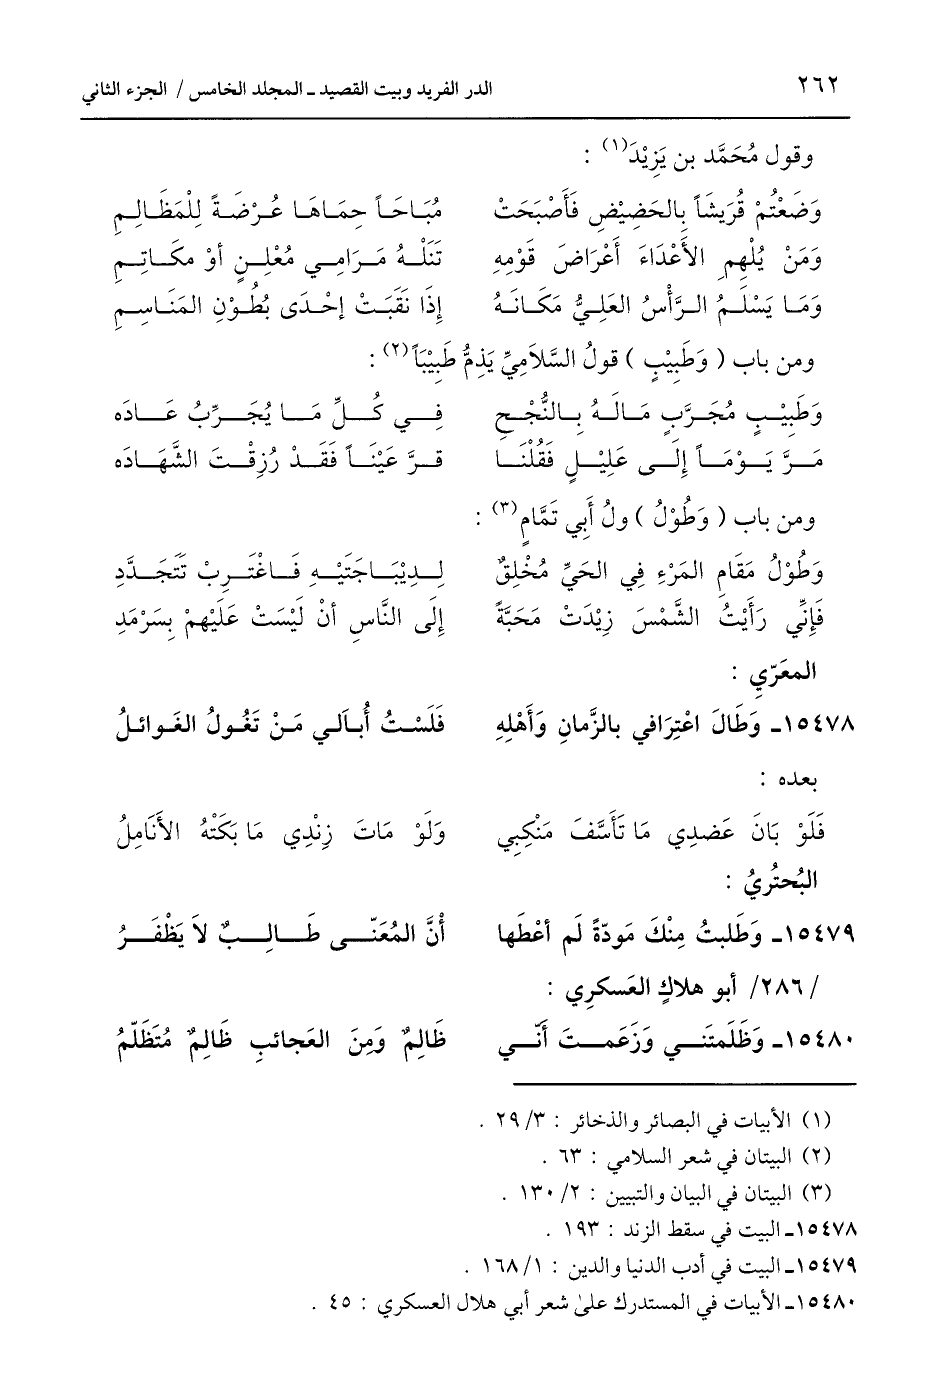 ٢٦٢ الدر الفريد وبيت القصيد ـ المجلد الخامس / الجزء الثاني
وقول مُحَمَّد بن يَزِيْدَ(١) :
وَضَعْتُمْ قُرَيْشَاً بِالحَضِيْضِ فَأَصْبَحَتْ مُبَـاحَـاً حِمَـاهَـا عُـرْضَـةً لِلْمَظَـالِـمِ
وَمَنْ يُلْهِمِ الأَعْدَاءَ أَعْرَاضَ قَوْمِهِ تَنَلْـهُ مَـرَامِـي مُعْلِـنٍ أوْ مكَـاتِـمِ
وَمَـا يَسْلَـمُ الـرَّأْسُ العَلِـيُّ مَكَـانَـهُ إِذَا نَقَبَـتْ إحْـدَى بُطُـوْنِ المَنَـاسِـمِ
ومن باب ( وَطَبِيْبٍ ) قولُ السَّلَامِيِّ يَذِمُّ طَبِيْبَاً(٢) :
وَطَبِيْـبٍ مُجَـرَّبٍ مَـالَـهُ بِـالنُّجْـحِ فِـي كُـلِّ مَـا يُجَـرِّبُ عَـادَه
مَـرَّ يَـوْمَـاً إِلَـى عَلِيْـلٍ فَقُلْنَـا قـرَّ عَيْنَـاً فَقَـدْ رُزِقْـتَ الشَّهَـادَه
ومن باب ( وَطُوْلُ ) ولُ أَبِي تَمَّامٍ(٣) :
وَطُوْلُ مَقَامِ المَرْءِ فِي الحَيِّ مُخْلِقٌ لِـدِيْبَـاجَتَيْـهِ فَـاغْتَـرِبْ تَتَجَـدَّدِ
فَإِنِّي رَأَيْتُ الشَّمْسَ زِيْدَتْ مَحَبَّةً إِلَى النَّاسِ أنْ لَيْسَتْ عَلَيْهِمْ بِسَرْمَدِ
المعَرّيِ :
١٥٤٧٨ـ وَطَالَ اعْتِرَافي بالزَّمانِ وَأَهْلِهِ فَلَسْـتُ أُبـاَلـي مَـنْ تَغُـولُ الغَـوائـلُ
بعده :
فَلَوْ بَانَ عَضدِي مَا تَأَسَّفَ مَنْكِبِي وَلَوْ مَاتَ زِنْدِي مَا بَكَتْهُ الأَنَامِلُ
البُحتُريُ :
١٥٤٧٩ـ وَطَلبتُ مِنْكَ مَودّةً لَم أعْطَها أنَّ المُعَنّـى طَـالِـبٌ لاَ يَظْفَـرُ
/٢٨٦/ أبو هلاكٍ العَسكرِي :
١٥٤٨٠ـ وَظَلَمتَنـي وَزَعَمـتَ أنّـي ظَالِمٌ وَمِنَ العَجائبِ ظَالِمٌ مُتَظَلّمُ
(١) الأبيات في البصائر والذخائر : ٣/ ٢٩ .
(٢) البيتان في شعر السلامي : ٦٣ .
(٣) البيتان في البيان والتبيين : ٢/ ١٣٠ .
١٥٤٧٨ـ البيت في سقط الزند : ١٩٣ .
١٥٤٧٩ـ البيت في أدب الدنيا والدين : ١/ ١٦٨ .
١٥٤٨٠ـ الأبيات في المستدرك علىٰ شعر أبي هلال العسكري : ٤٥ .